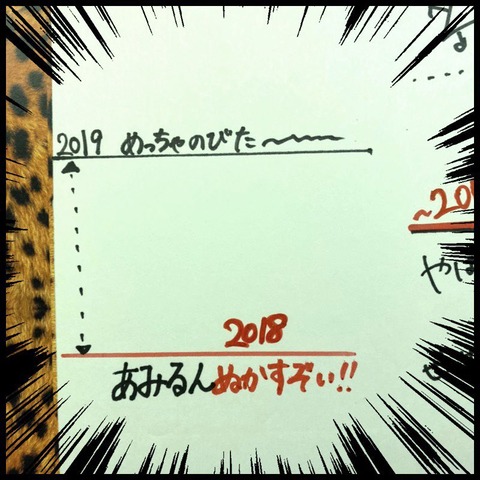 2019 めっちゃのびた〜
2018
あみるんぬかすぞぃ!!
~20
やは